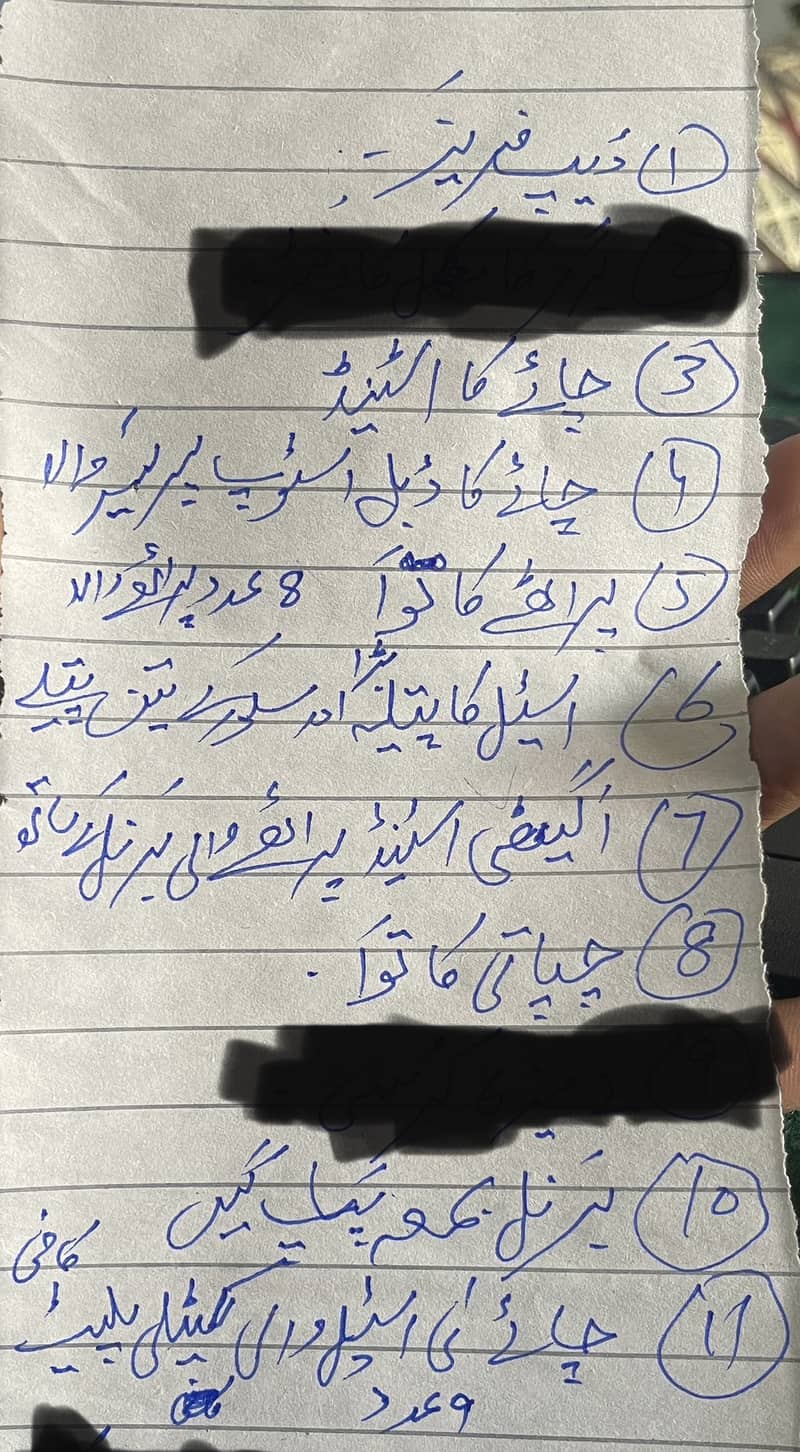 ① ڈیپ فریزر -
③ چائے کا اسٹینڈ
④ چائے کا ڈبل اسٹوپ والا
⑤ پراٹھے کا توا 8 عدد پراٹھے والا
⑥ اسٹیل کا پتیلہ بڑا اور تین پتیلے
⑦ انگیٹھی اسٹینڈ پراٹھے والی برنل کے ساتھ
⑧ چپاتی کا توا .
⑩ برنل بمعہ پائپ گیس
⑪ چائے کی اسٹیل والی کیتلی پلیٹ کافی
9 عدد